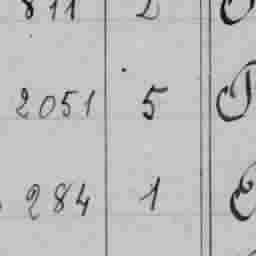 811 2
2051 5
284 1